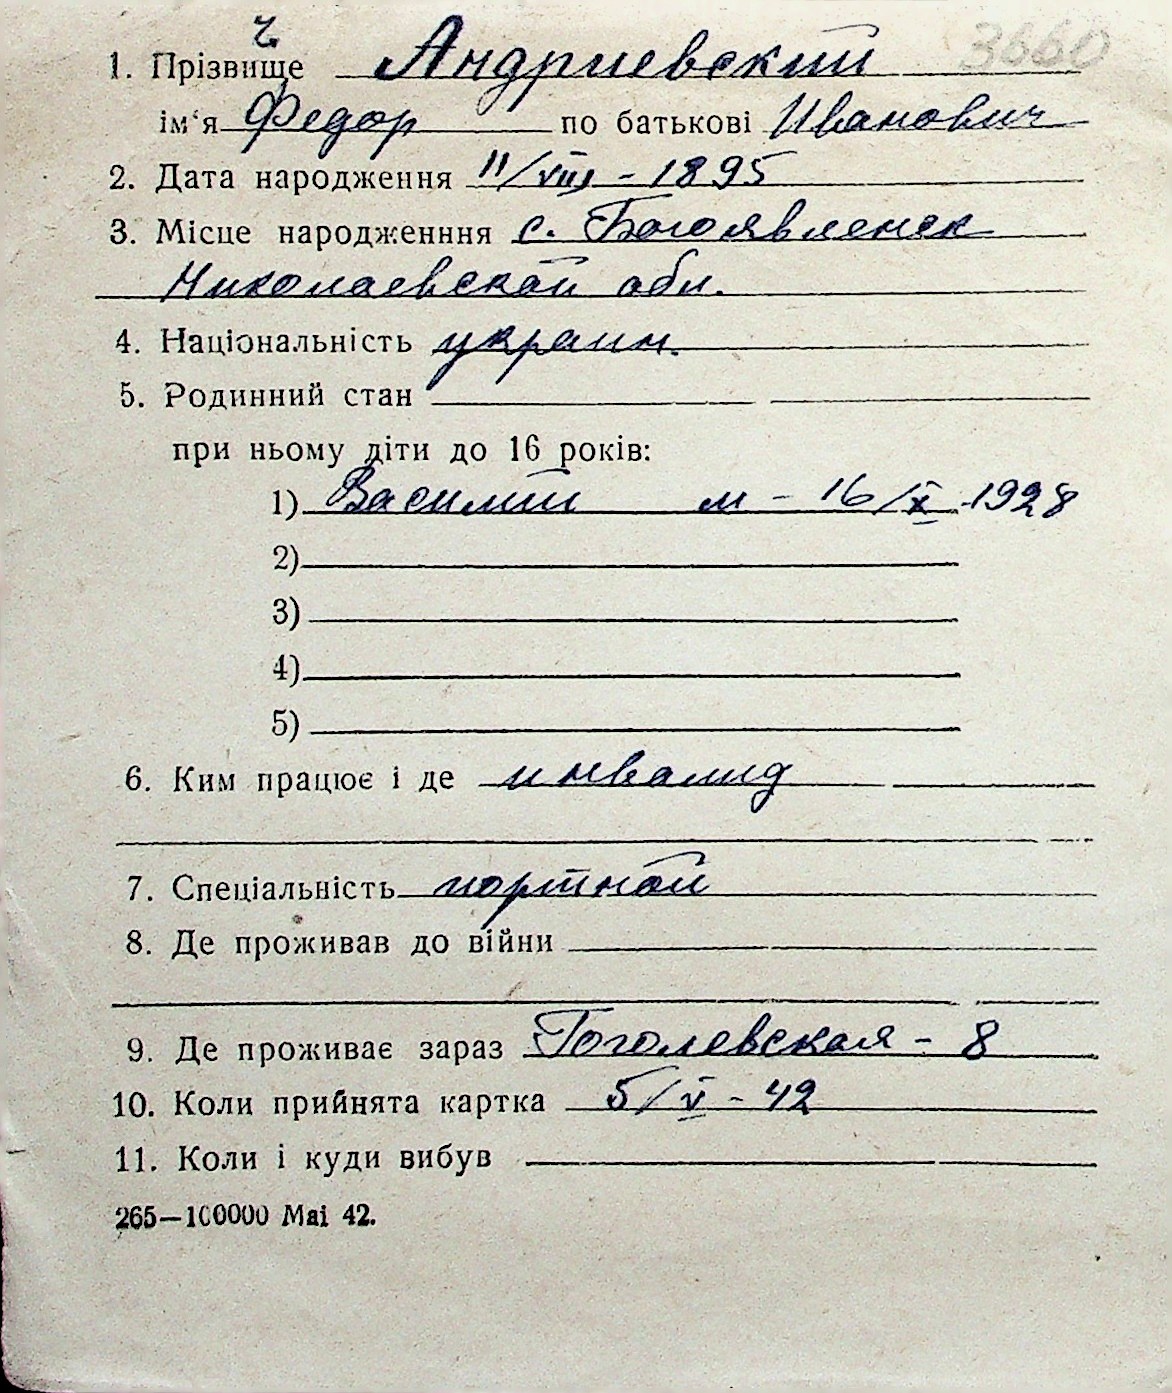 ч
3660
1. Прізвище Андриевский
ім'я Федор по батькові Иванович
2. Дата народження 11/VIII - 1895
3. Місце народженння с. Богоявленск
Николаевской обл.
4. Національність украин.
5. Родинний стан
при ньому діти до 16 років:
1) Василий м - 16/X 1928
2)
3)
4)
5)
6. Ким працює і де инвалид
7. Спеціальність портной
8. Де проживав до війни
9. Де проживає зараз Гоголевская - 8
10. Коли прийнята картка 5/V - 42
11. Коли і куди вибув
265—100000 Mai 42.